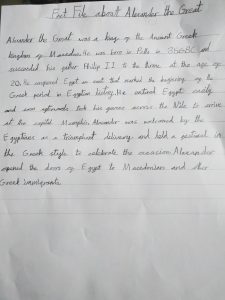 Fact File about Alexander the Great
Alexander the Great was a king of the Ancient Greek
kingdom of Macedonia. He was born in Pella in 356BC and
succeeded his father Philip II to the throne at the age of
20. He conquered Egypt an event that marked the beginning of the
Greek period in Egyptian history. He entered Egypt easily
and soon afterwards took his games across the Nile to arrive
at the capital Memphis. Alexander was welcomed by the
Egyptians as a triumphant delivery and held a festival in
the Greek style to celebrate the occasion. Alexander
opened the doors of Egypt to Macedonians and other
Greek immigrants.